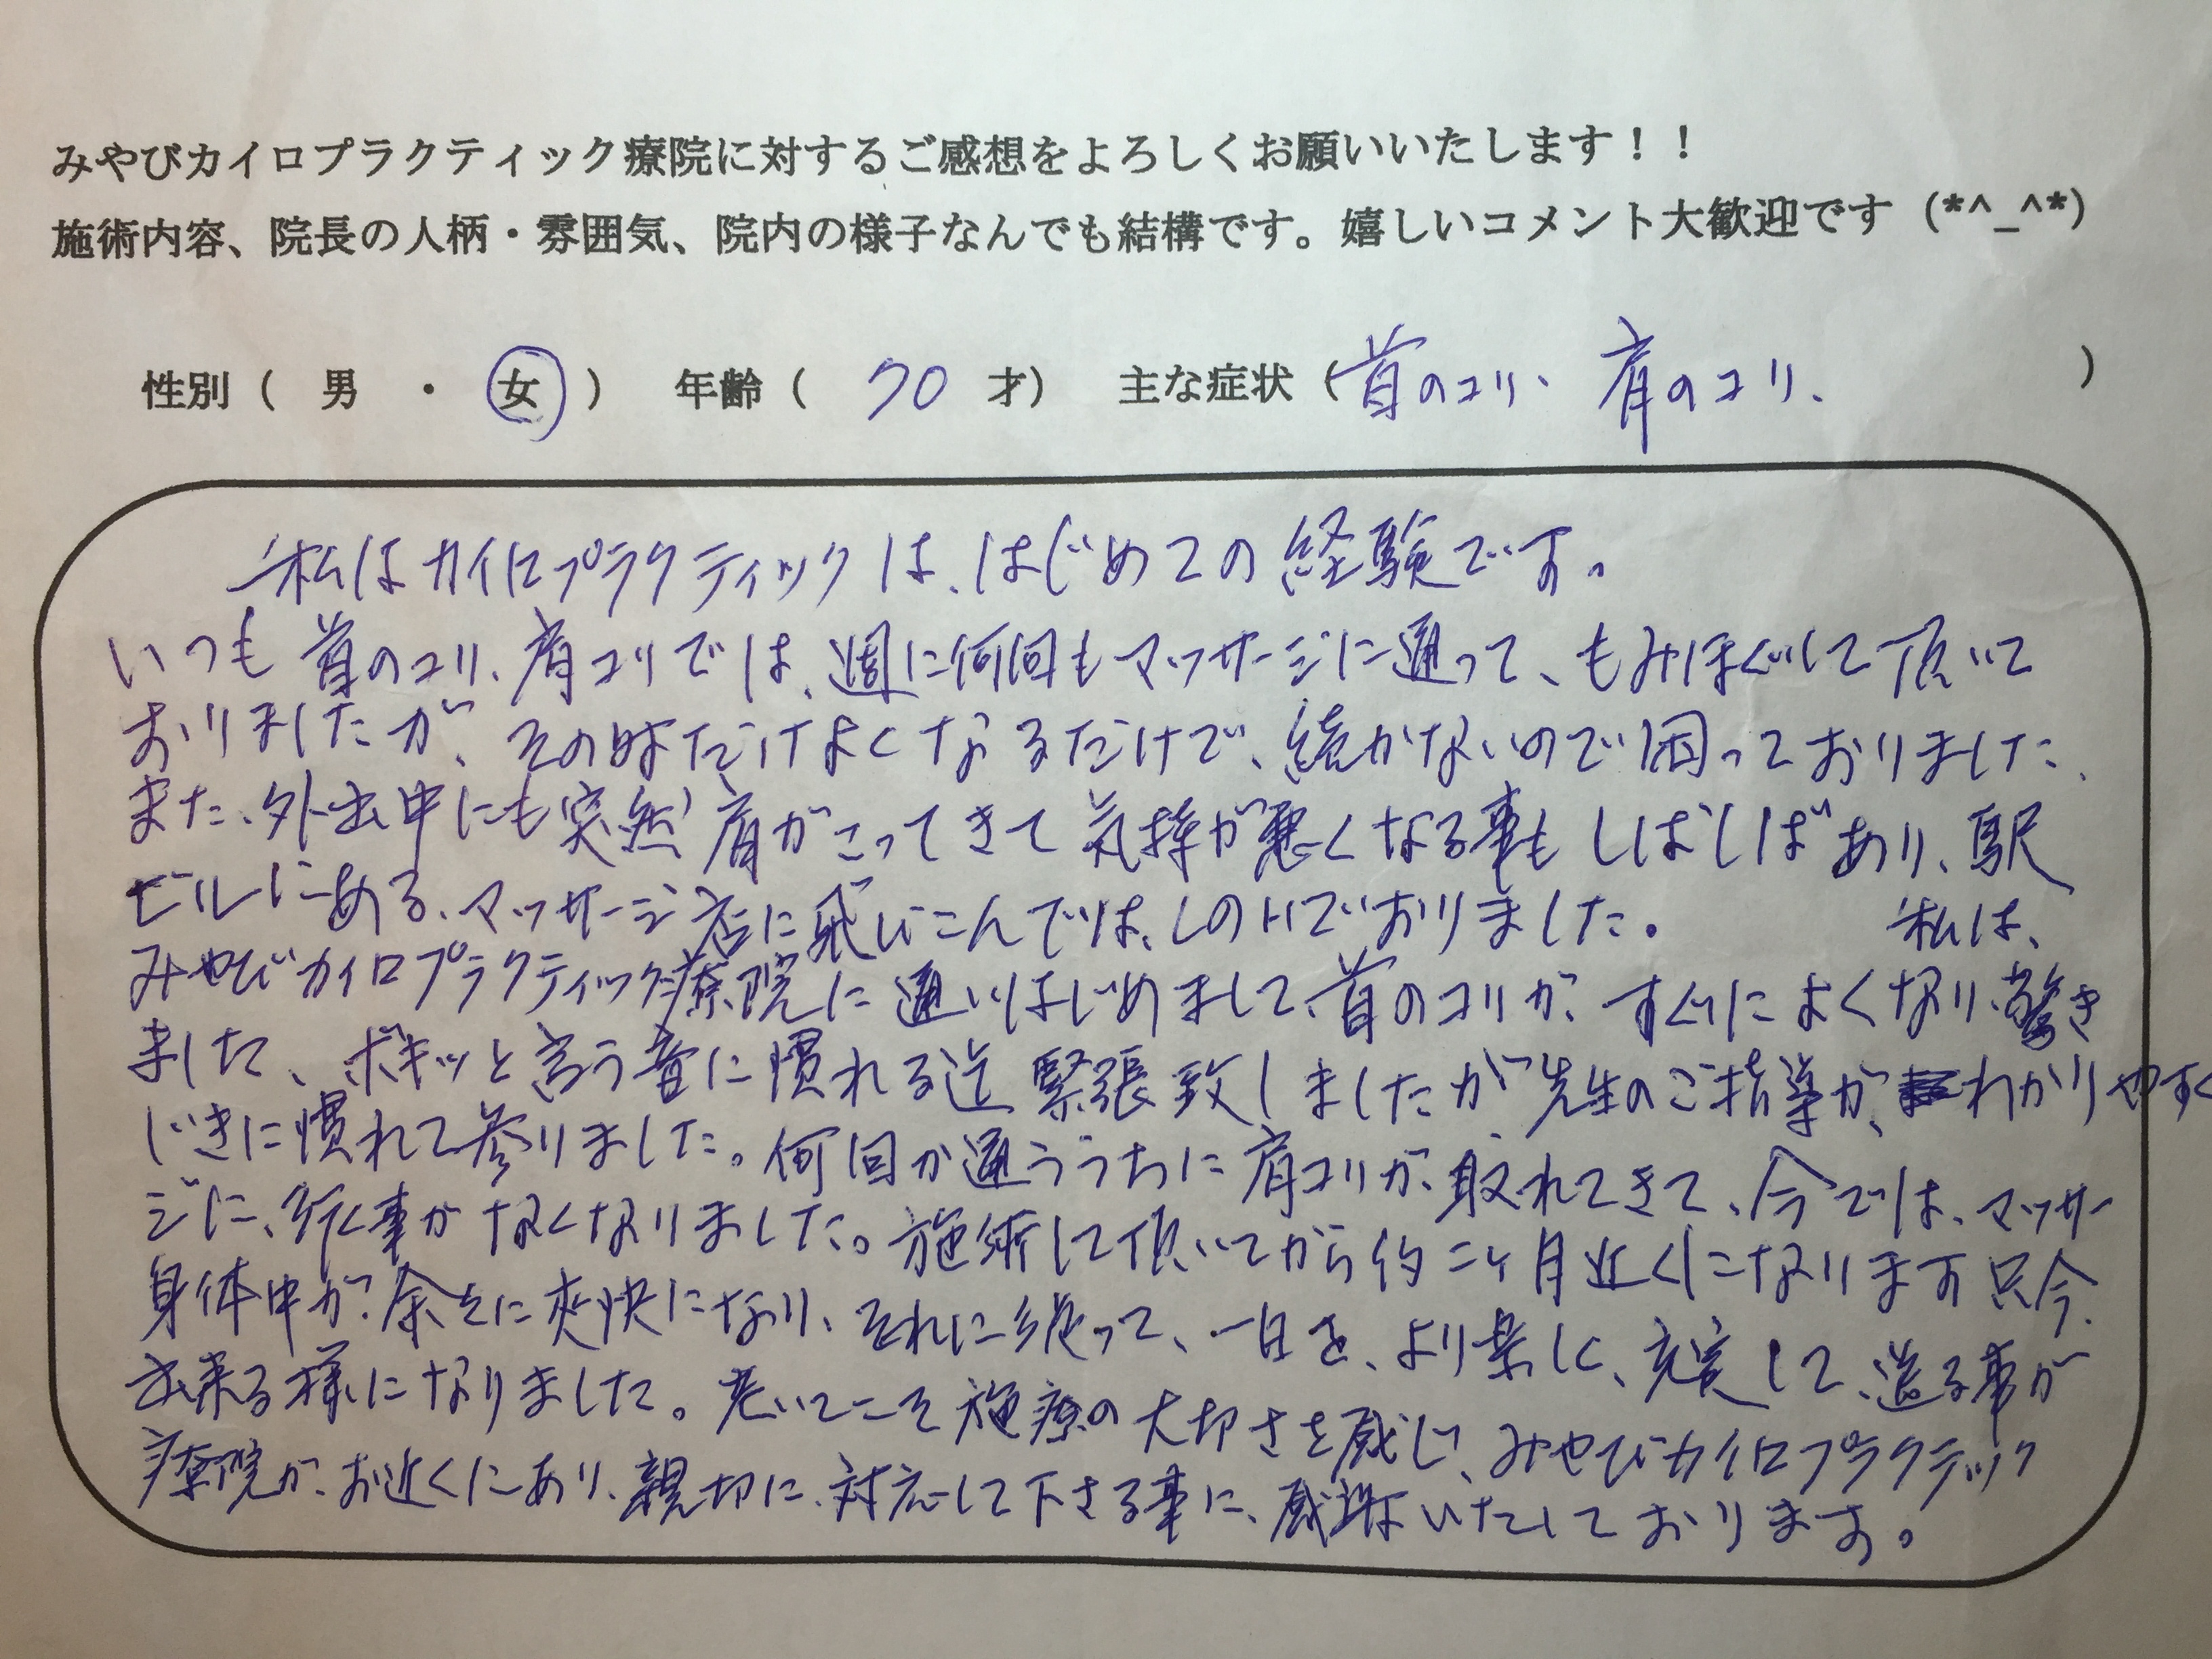 みやびカイロプラクティック療院に対するご感想をよろしくお願いいたします！！
施術内容、院長の人柄・雰囲気、院内の様子なんでも結構です。嬉しいコメント大歓迎です（*^_^*）
性別（ 男 ・ 女 ） 年齢（ 70 才） 主な症状（首のコリ、肩のコリ、 ）
私はカイロプラクティックは、はじめての経験です。
いつも首のコリ、肩コリでは、週に何回もマッサージに通って、もみほぐして頂いて
おりましたが、その時だけよくなるだけで、続かないので困っておりました、
また、外出中にも突然肩がこってきて気持が悪くなる事もしばしばあり、駅
ビルにある、マッサージ店に飛びこんでは、しのいでおりました。 私は、
みやびカイロプラクティック療院に通いはじめまして、首のコリが、すぐによくなり、驚き
ました、ボキッと言う音に慣れる迄緊張致しましたが先生のご指導が、わかりやすく
じきに慣れて参りました。何回か通ううちに肩コリが、取れてきて、今では、マッサー
ジに、行く事がなくなりました。施術して頂いてから約二ヶ月近くになります只今、
身体中が、爽快になり、それに従って、一日を、より楽しく、充実して、送る事が
出来る様になりました。老いてこそ施療の大切さを感じ、みやびカイロプラクテック
療院が、お近くにあり、親切に、対応して下さる事に、感謝いたしております。